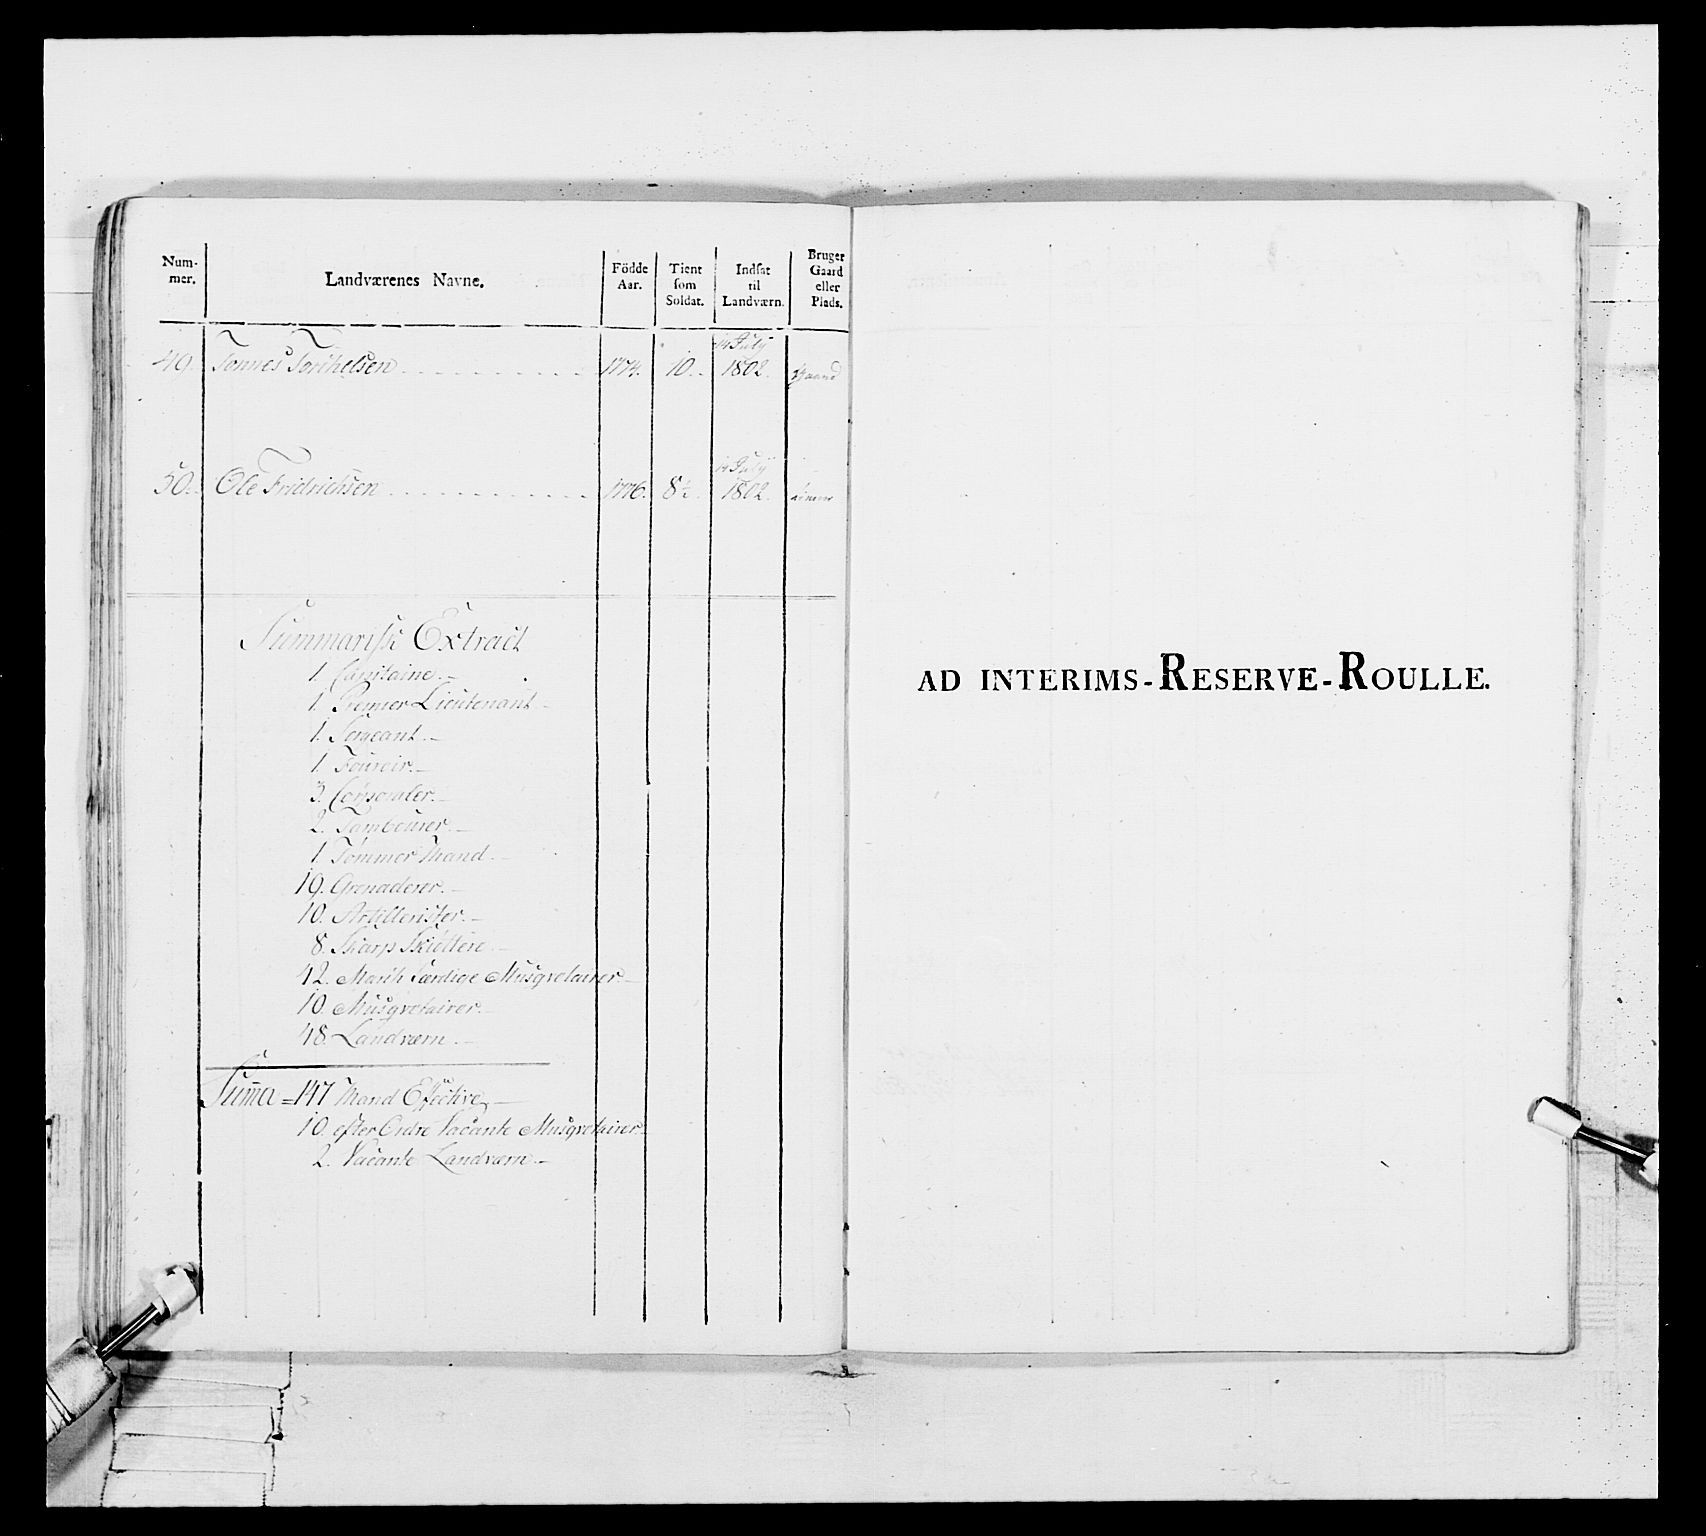 Num-
mer. Landværenes Navne. Födde
Aar. Tient
som
Soldat. Indsat
til
Landværn. Bruger
Gaard
eller
Plads.
49. Tönnes Torkelsen 1774. 10. 14 July
1802. Gaard
50. Ole Fridrichsen 1776. 8½. 14 July
1802.
Summarisk Extract
1. Capitaine.
1. Premier Lieutenant
1. Sergeant.
1. Fourir.
3. Corporaler.
2. Tambourer.
1. Tømmer Mand.
19. Grenaderer.
10. Artillerister.
8. Skarp Skiöttere
42. March Færdige Musqvetairer.
10. Musqvetairer.
48. Landværn.
Suma = 147 Mand Effective
10. efter Ordre Vacante Musqvetairer.
2. Vacante Landværn
AD INTERIMS-RESERVE-ROULLE.